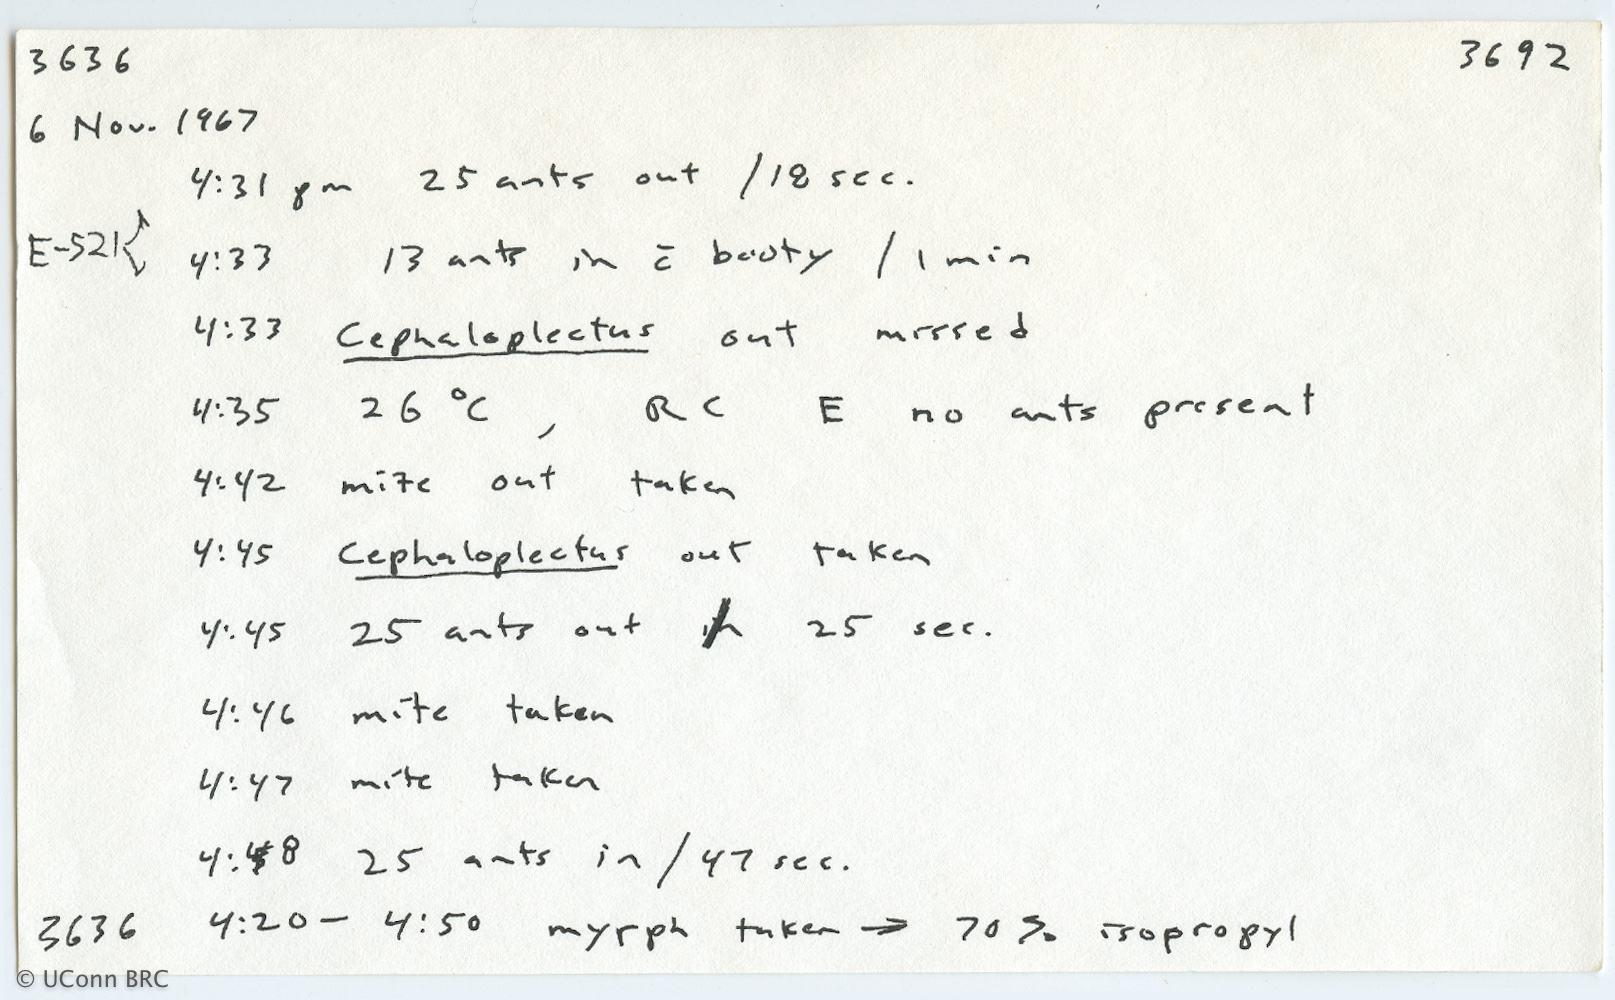 3636 3692
6 Nov. 1967
4:31 pm 25 ants out /18 sec.
E-521
4:33 13 ants in c̄ booty / 1 min
4:33 Cephaloplectus out missed
4:35 26 °C, RC E no ants present
4:42 mite out taken
4:45 Cephaloplectus out taken
4:45 25 ants out / 25 sec.
4:46 mite taken
4:47 mite taken
4:48 25 ants in / 47 sec.
3636 4:20 - 4:50 myrph taken → 70% isopropyl
© UConn BRC